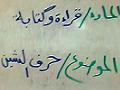 المادة/قراءة وكتابة
الموضوع/حرف الشين